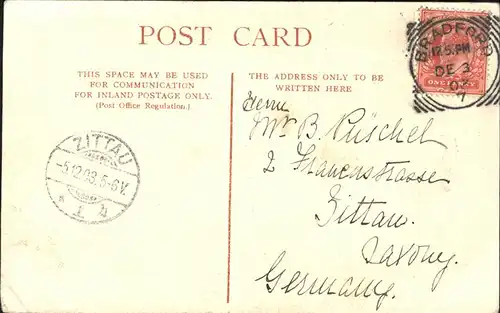 POST CARD
THIS SPACE MAY BE USED
FOR COMMUNICATION
FOR INLAND POSTAGE ONLY.
(Post Office Regulation.)
THE ADDRESS ONLY TO BE
WRITTEN HERE
BRADFORD
DE 3
03
7
ONE PENNY
ZITTAU
-5.12.03.5-6V.
Herrn
Mr B. Rüschel
2 Frauenstrasse
Zittau.
Saxony.
Germany.